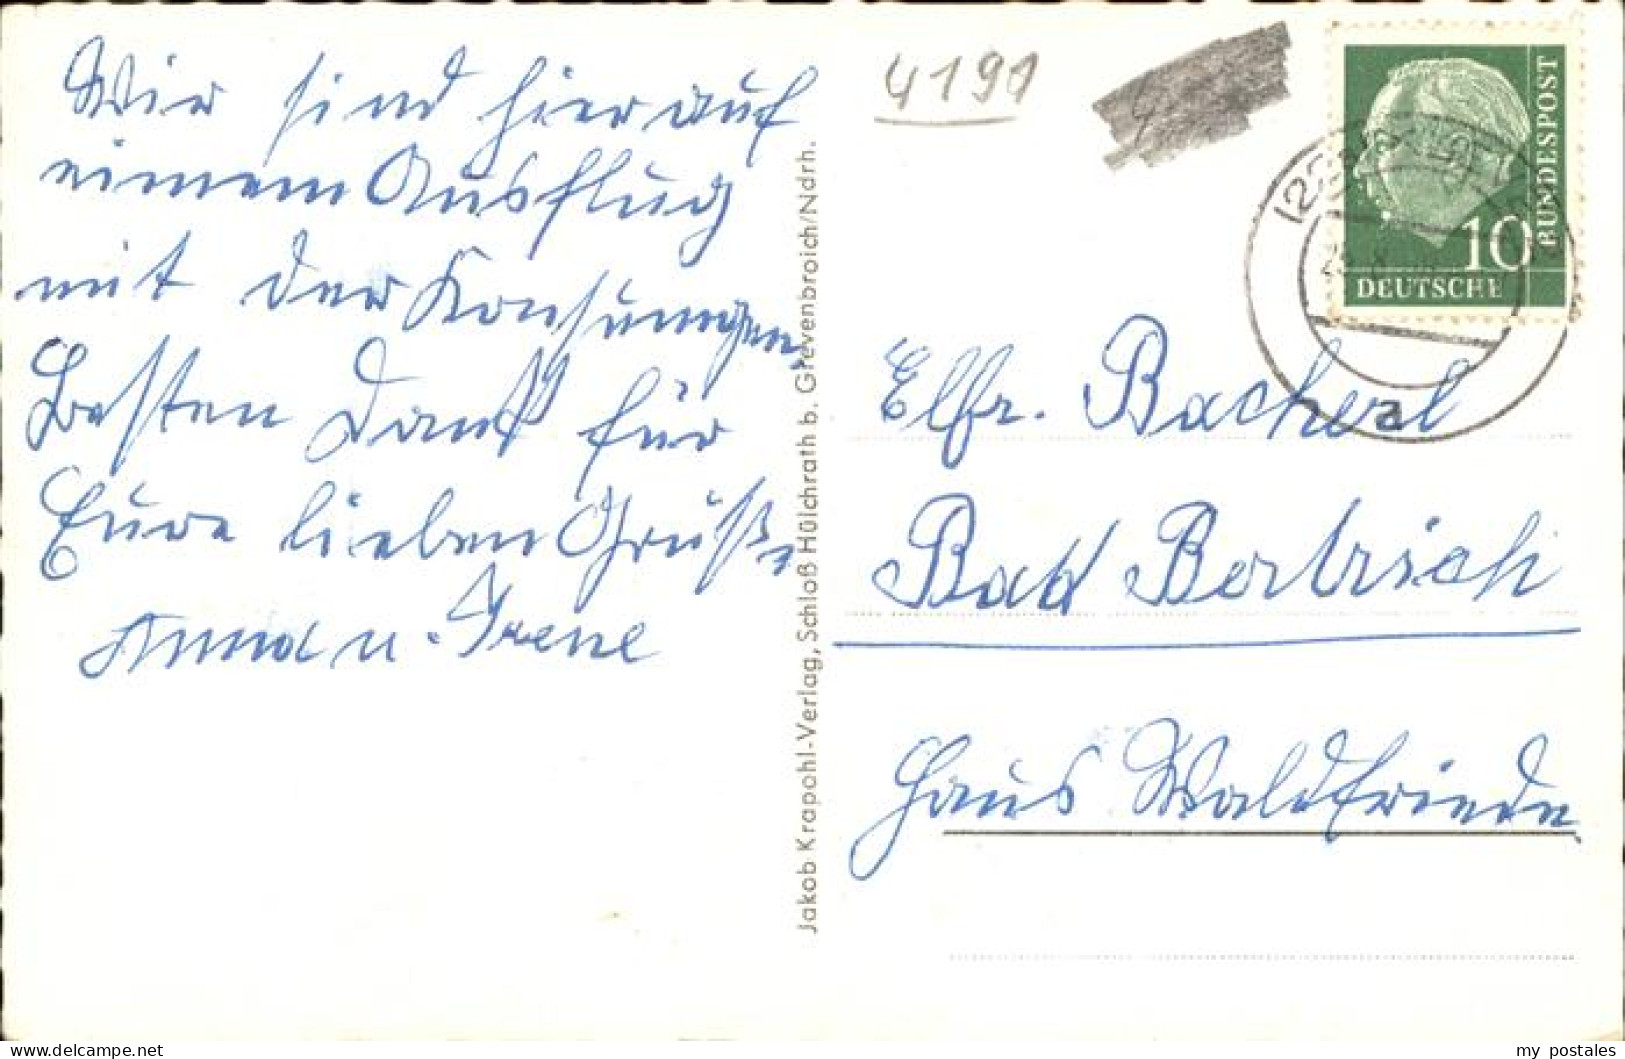 Wir sind hier auf
einem Ausflug
mit der
Besten Dank für
Eure lieben Grüße
Anna u. Irene
Jakob Krapohl-Verlag, Schloß Hülchrath b. Grevenbroich/Ndrh.
4191
10
DEUTSCHE
BUNDESPOST
(22
a
Elfr. Bacherl
Bad Bertrich
Haus Waldfrieden
my postales